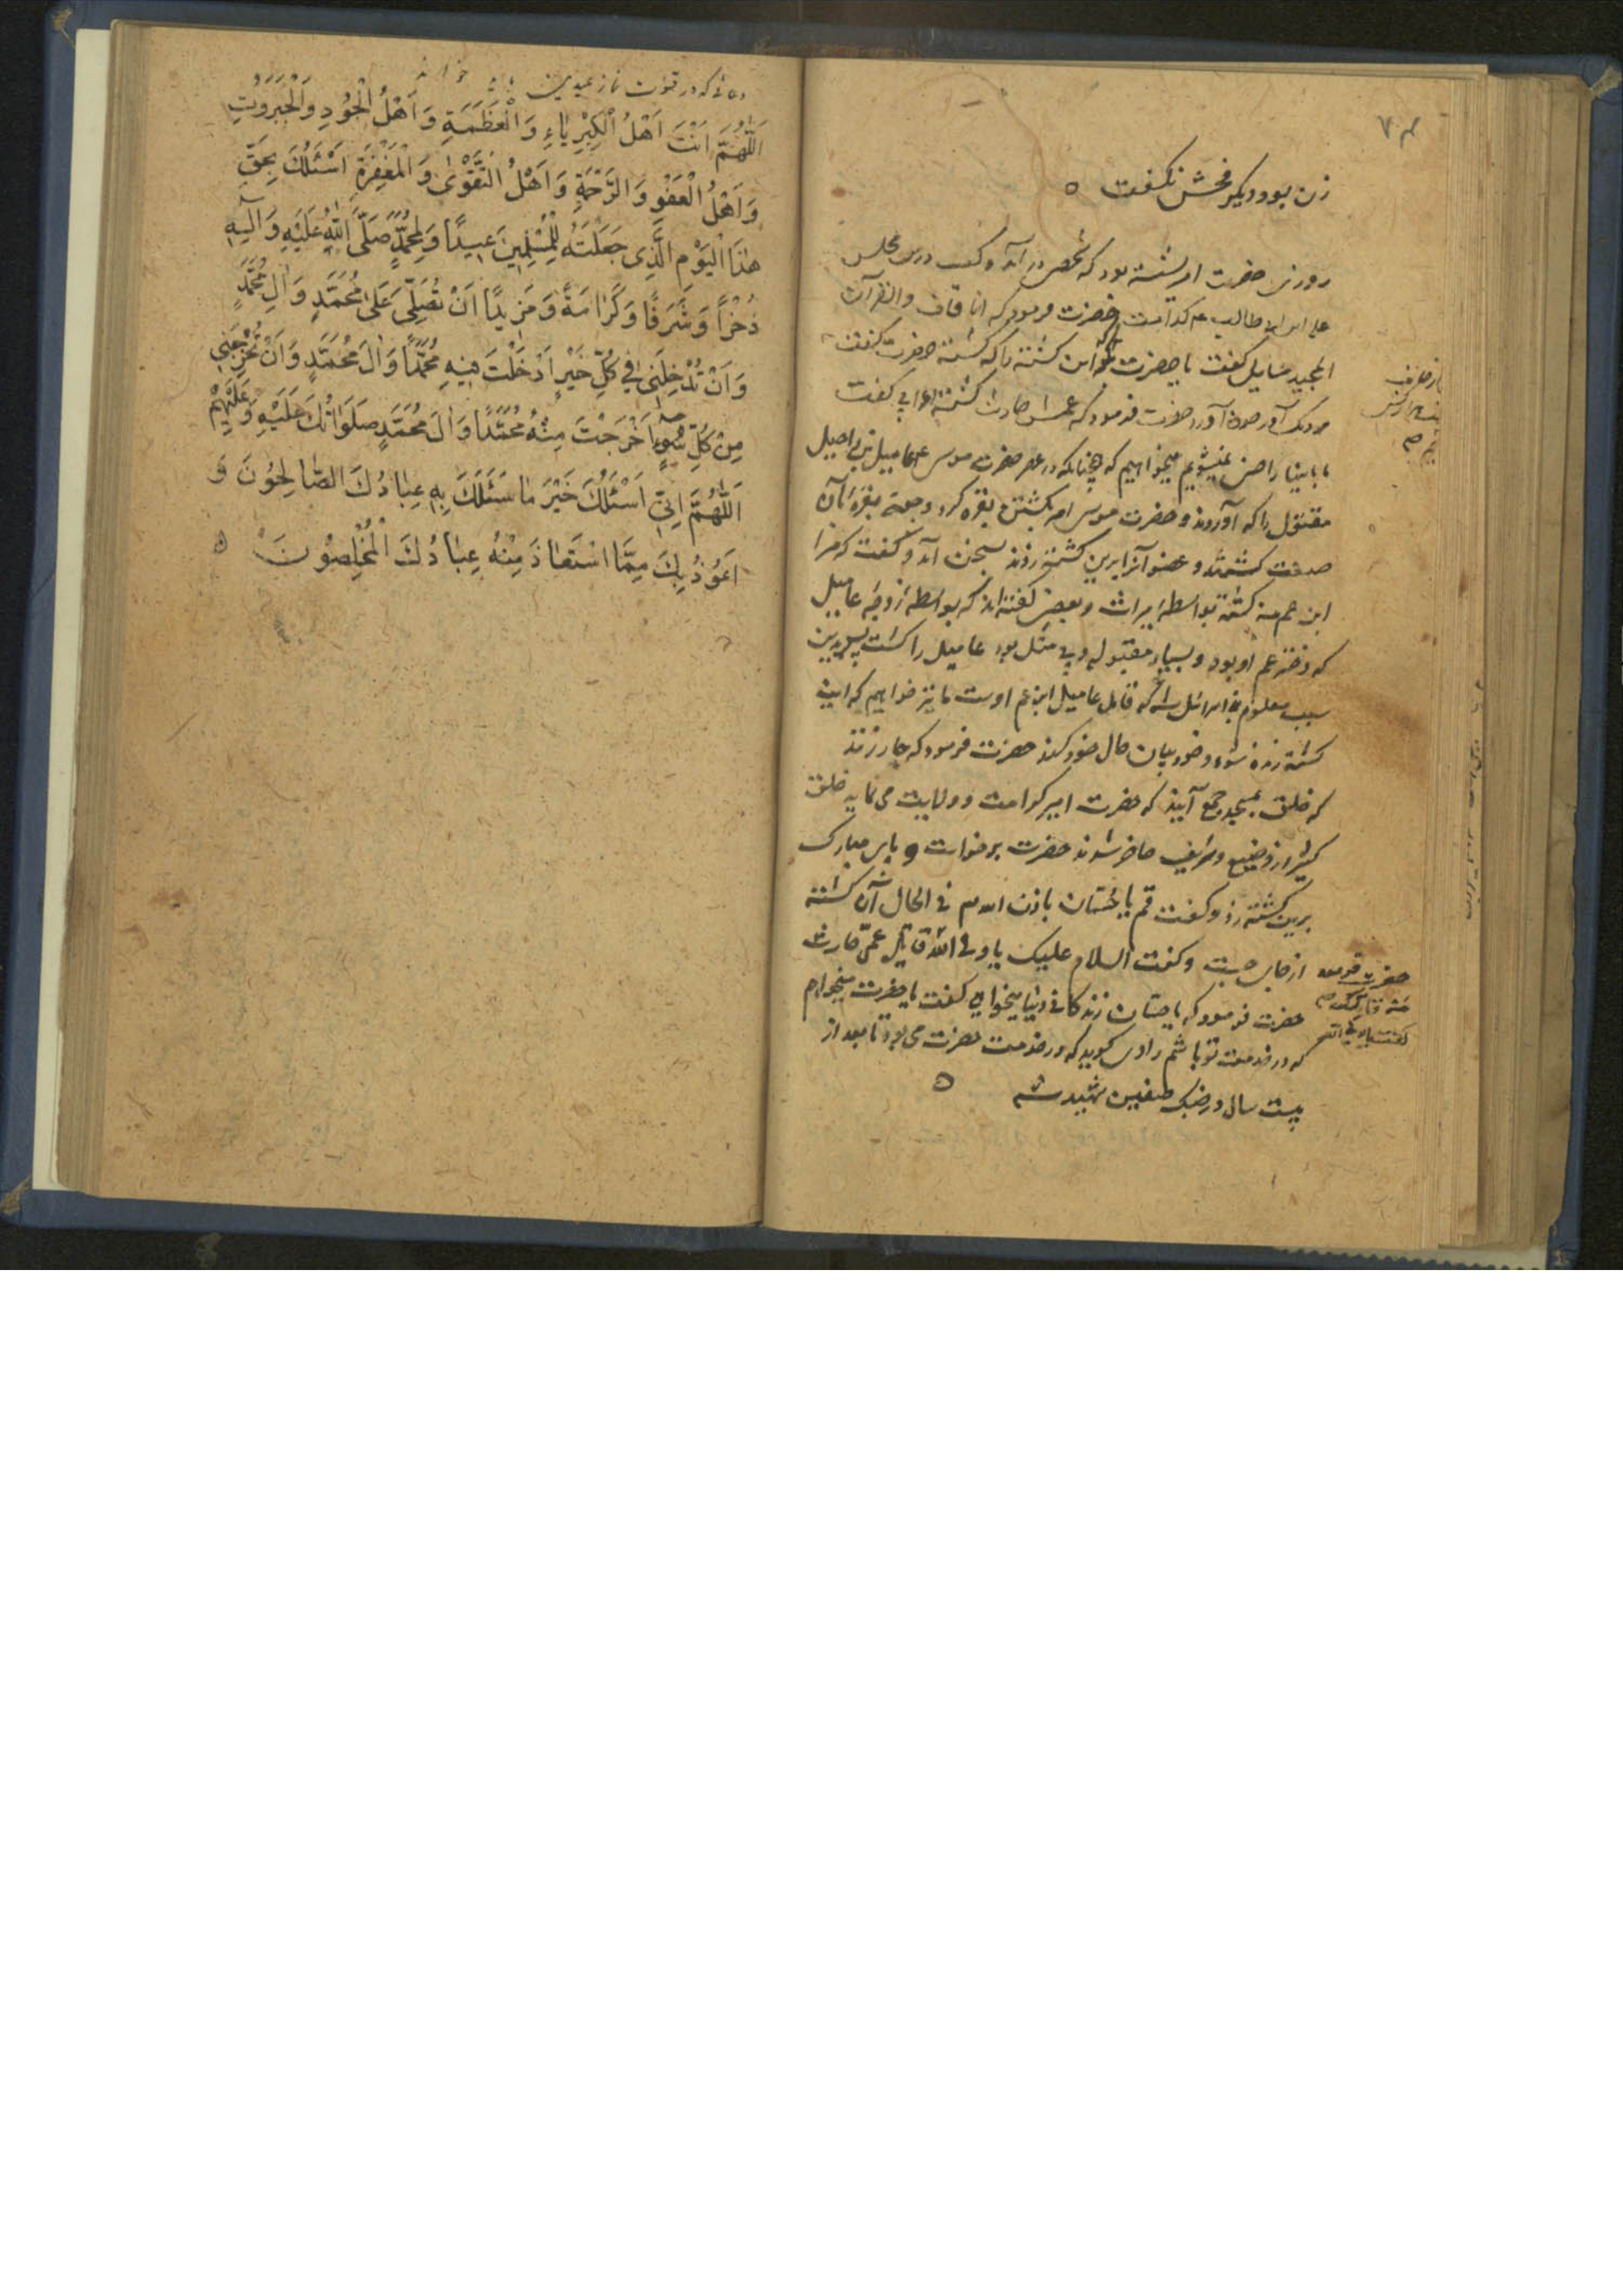 زن بود و دیگر فحش نکفت ه
روزی حضرت امیر نشسته بود که شخصی در آمد و کفت درین مجلس
علی ابن ابی طالب ع م کدامست حضرت فرمود که انا قاف والقرآن
المجید سایل کفت یا حضرت این کشته را که کشته حضرت کفت
آورد حضرت فرمود که عمش حارث کشته اعرابی کفت
ما باینها راضی نمیشویم میخواهیم که همچنانکه در عهد حضرت موسی عامیل بنی اصیل
مقتول را که آوردند و حضرت موسی امر بکشتن بقره کرد و جمعی بقرۀ بآن
صفت کشتند و عضو آنرا برین کشته زدند بسخن آمد و کفت که مرا
ابن عم من کشته بواسطه میراث و بعضی کفته اند که بواسطه زوجه عامیل
که دختر عم او بود و بسیار مقبوله و بی مثل بود عامیل را کشت پس بدین
سبب معلوم بنی اسرائیل شد که قاتل عامیل ابن عم اوست ما نیز خواهیم که این
کشته زنده شود و خود بیان حال خود کند حضرت فرمود که جار زنند
که خلق بمسجد جمع آیند که حضرت امیر کرامت و ولایت می نماید خلق
کثیر از وضیع و شریف حاضر شدند حضرت برخواست و پای مبارک
برین کشته زد و کفت قم یا باذن الله فی الحال آن کشته
از جای جست و کفت السلام علیک یا ولی الله قاتل عمی حارث
حضرت فرمود که یا زندکانی دنیا میخواهی کفت یا حضرت میخواهم
که در خدمت تو باشم راوی کوید که در خدمت حضرت می بود تا بعد از
بیست سال در جنک صفین شهید شد ه
حضرت فرمود
من قاتلک
کفت یا ولی الله
دعائی که در قنوت نماز عیدین خوانند
اَللّٰهُمَّ اَنْتَ اَهْلُ الْکِبْرِیٰاءِ وَ الْعَظَمَةِ وَ اَهْلُ الْجُودِ وَالْجَبَرُوتِ
وَ اَهْلُ الْعَفْوِ وَ الرَّحْمَةِ وَ اَهْلُ التَّقْوٰی وَ الْمَغْفِرَةِ اَسْئَلُكَ بِحَقِّ
هٰذَا الْیَوْمِ الَّذِی جَعَلْتَهُ لِلْمُسْلِمِینَ عِیدًا وَ لِمُحَمَّدٍ صَلَّی اللّٰهُ عَلَیْهِ وَ اٰلِهِ
ذُخْرًا وَ شَرَفًا وَ کَرٰامَةً وَ مَزِیدًا اَنْ تُصَلِّیَ عَلٰی مُحَمَّدٍ وَ اٰلِ مُحَمَّدٍ
وَ اَنْ تُدْخِلَنِی فِی کُلِّ خَیْرٍ اَدْخَلْتَ فِیهِ مُحَمَّدًا وَ اٰلَ مُحَمَّدٍ وَ اَنْ تُخْرِجَنِی
مِنْ کُلِّ سُوءٍ اَخْرَجْتَ مِنْهُ مُحَمَّدًا وَ اٰلَ مُحَمَّدٍ صَلَوٰاتُكَ عَلَیْهِ وَ عَلَیْهِمْ
اَللّٰهُمَّ اِنِّی اَسْئَلُكَ خَیْرَ مٰا سَئَلَكَ بِهِ عِبٰادُكَ الصّٰالِحُونَ وَ
اَعُوذُ بِكَ مِمَّا اسْتَعٰاذَ مِنْهُ عِبٰادُكَ الْمُخْلِصُونَ ه